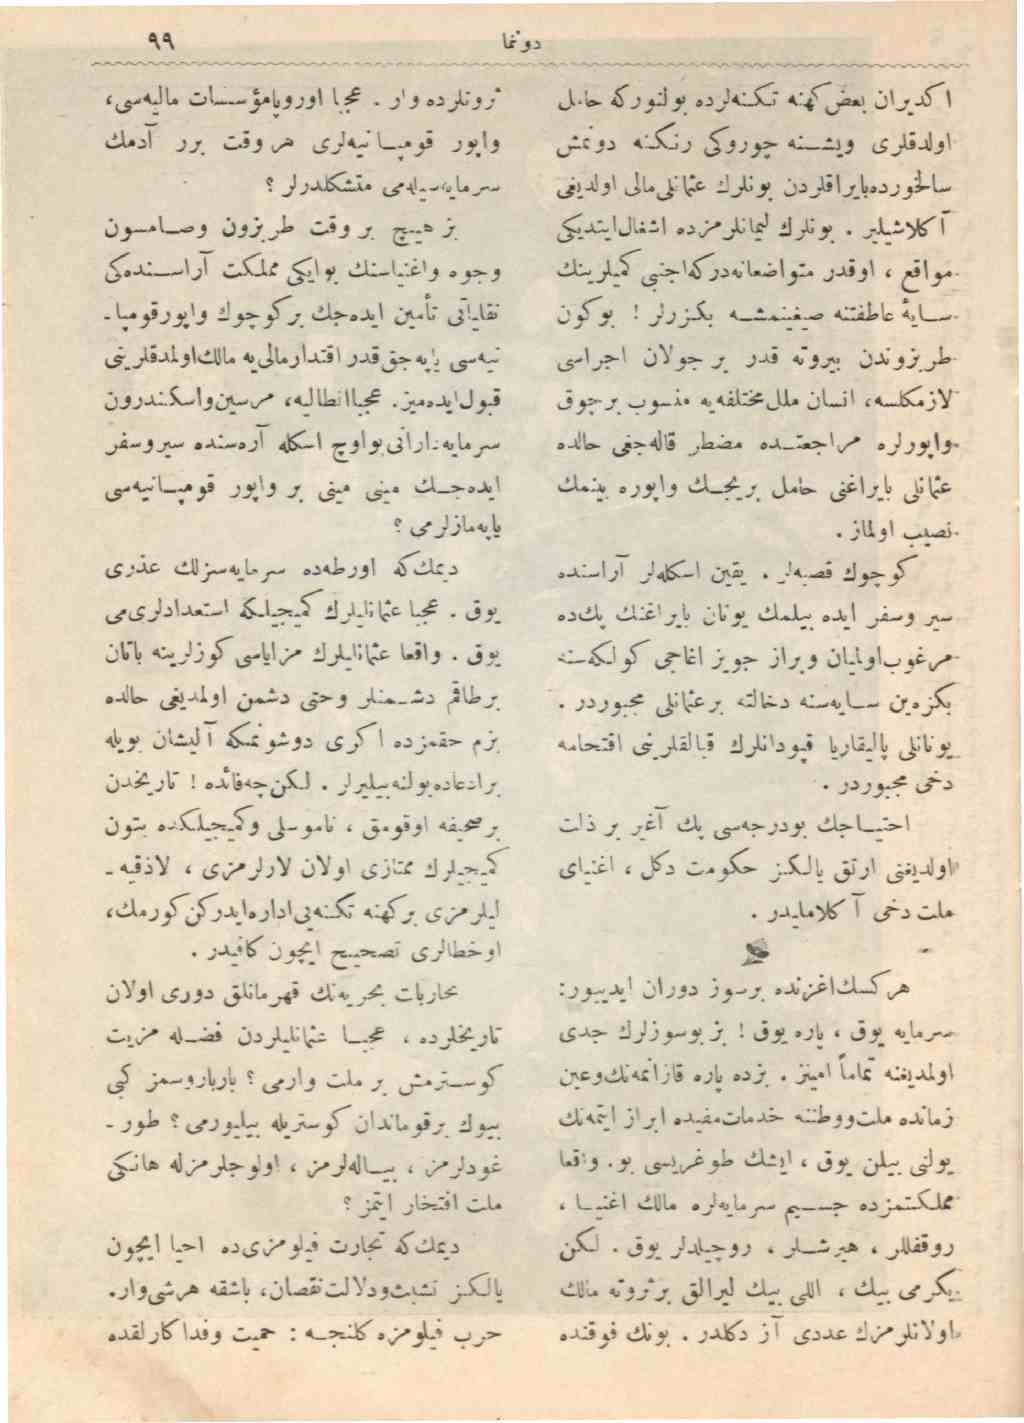 دونما
٩٩
اكديران بعض كهنه تكنه‌لرده بولنورکه حامل
اولدقلرى ويشــنه چوروكى رنكنه دونمش
سالخورده‌بايراقلردن بونلرك عثمانلى‌مالى اولديغى
آكلاشيلير . بونلرك ليمانلرمزده اشغال‌ايتديكى
مواقع ، اوقدر متواضعانه‌درکه‌اجنبى كميلرينك
ســايۀ عاطفتنه صيغينمشــه بكزرلر ! بوكون
طربزوندن بيروته قدر بر جولان اجراسى
لازمكلسه، انسان ملل‌مختلفه‌يه منسوب برچوق
واپورلره مراجعتــده مضطر قاله‌جغى حالده
عثمانلى بايراغنى حامل بريجــك واپوره بينمك
نصيب اولماز .
كوچوك قصبه‌لر . يقين اسكله‌لر آراسنده
سير وسفر ايده بيلمك يونان بايراغنك پك‌ده
مرغوب‌اولميان وبراز جويز اغاجى كولكه‌سنه
بكزه‌ين ســايه‌سنه دخالته برعثمانلى مجبوردر .
يونانلى پاليقاريا قپودانلرك قبالقلرينى اقتحامه
دخى مجبوردر .
احتيــاجك بودرجه‌سى پك آغير بر ذلت
اولديغنى ارتق يالكــز حكومت دكل ، اغنياى
ملت دخى آكلامايدر .
هركسك‌اغزنده برسوز دوران ايدييور:
سرمايه يوق ، پاره يوق ! بز بوسوزلرك جدى
اولمديغنه تماماً امينز . بزده پاره قازانمه‌نك‌وعين
زمانده ملت‌ووطننه خدمات‌مفيده ابراز ايتمه‌نك
يولنى بيلن يوق ، ايشك طوغريسى بو. واقعا
مملكتمزده جســيم سرمايه‌لره مالك اغنيــا ،
روقفللر ، هيرشــلر ، روچيلدلر يوق . لكن
يكرمى بيك ، اللى بيك ليرالق برثروته مالك
اولانلرمزك عددى آز دكلدر . بونك فوقنده
ثروتلرده وار . عجبا اوروپامؤسسات ماليه‌سى،
واپور قومپــانيه‌لرى هروقت برر آدمك
سرمايه‌سيله‌مى متشكلدرلر ؟
بز هيــچ بر وقت طربزون وصــامسون
وجوه واغنياسنك بوايكى مملكت آراســنده‌كى
نقلياتى تأمين ايده‌جك بركوچوك واپورقومپا‌ـ
نيه‌سى ياپه‌جق‌قدر اقتدارمالى‌يه مالك‌اولمدقلرينى
قبول‌ايده‌ميز. عجباانطاليه، مرسين‌واسكندرون
سرمايه‌دارانى‌بواوچ اسكله آره‌سنده سيروسفر
ايده‌جــك مينى مينى بر واپور قومپــانيه‌سى
ياپه‌مازلرمى ؟
ديمك‌که اورطه‌ده سرمايه‌سزلك عذرى
يوق . عجبا عثمانليلرك كميجيلكه استعدادلرى‌مى
يوق . واقعا عثمانليلرك مزاياسى كوزلرينه باتان
برطاقم دشــمنلر وحتى دشمن اولمديغى حالده
بزم حقمزده اكرى دوشونمكه آليشان بويله
برادعاده‌بولنه‌بيليرلر . لكن‌چه‌فائده ! تاريخدن
برصحيفه اوقومق ، ناموسلى وكميجيلكده بتون
كميجيلرك ممتازى اولان لازلرمزى ، لاذقيه ـ
ليلرمزى بركهنه تكنه‌يى‌اداره‌ايدركن‌كورمك،
اوخطالرى تصحيــح ايچون كافيدر .
محاربات بحريه‌نك قهرمانلق دورى اولان
تاريخلرده ، عجبــا عثمانليلردن فضــله مزيت
كوســترمش بر ملت وارمى ؟ بارباروسمز كبى
بيوك برقوماندان كوستريله بيليورمى ؟ طور ـ
غودلرمز ، پيــاله‌لرمز ، اولوجلرمزله هانكى
ملت افتخار ايتمز ؟
ديمك‌که تجارت فيلومزى‌ده احيا ايچون
يالكــز تشبث‌ودلالت‌نقصان، باشقه هرشى‌وار.
حرب فيلومزه كلنجــه : حميت وفداكارلقده